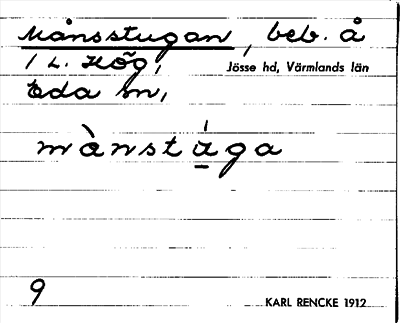 Månsstugan, beb. å
1 L. Hög,
Jösse hd, Värmlands län
Eda sn,
mànstų́ga
9
KARL RENCKE 1912